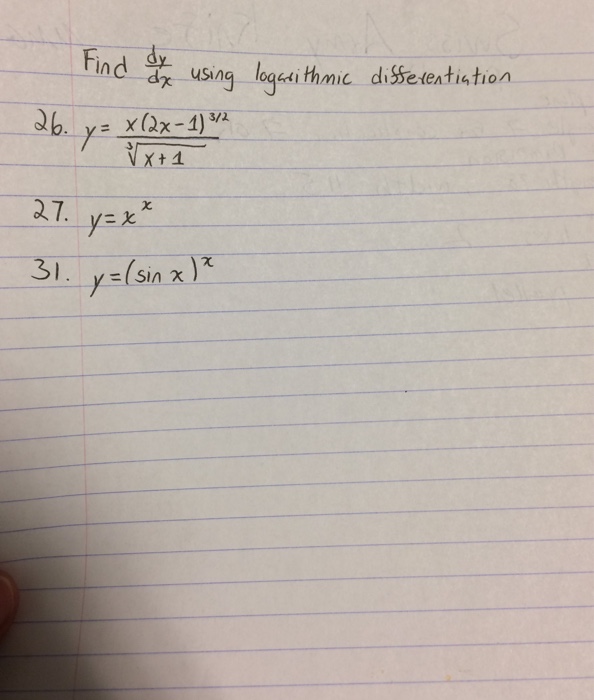 Find dy/dx using logarithmic differentiation
26. y = x(2x-1)^3/2 / ∛x+1
27. y=x^x
31. y=(sin x)^x